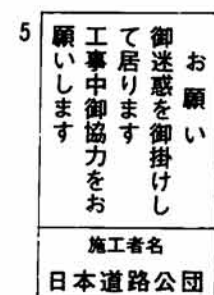 5
お願い
御迷惑を御掛けし
て居ります
工事中御協力をお
願いします
施工者名
日本道路公団